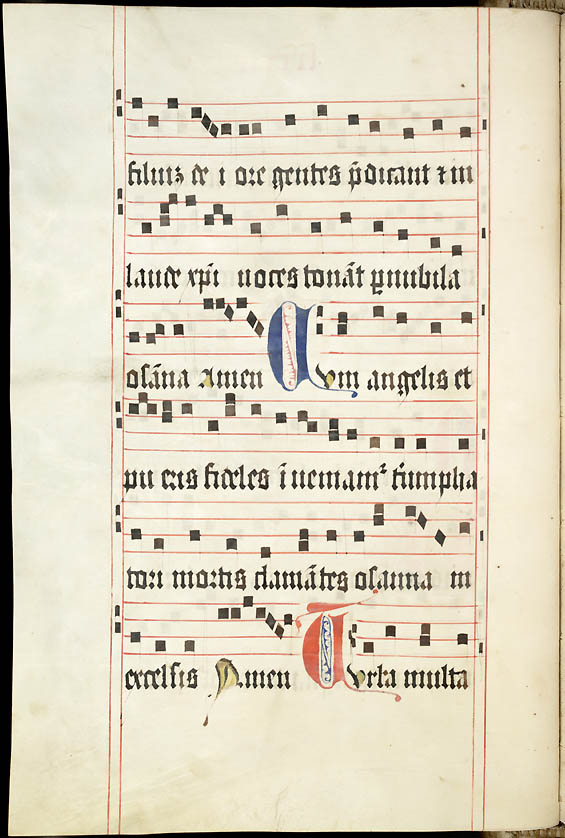 de i ore gentes p̄dicant ⁊ in
laude xp̄i uoces tonāt ꝑ nubila
osāna Amen Cum angelis et
pu eris fideles īueniam᷒ t̓iumpha
tori mortis clamātes osanna in
excelsis Amen Turba multa